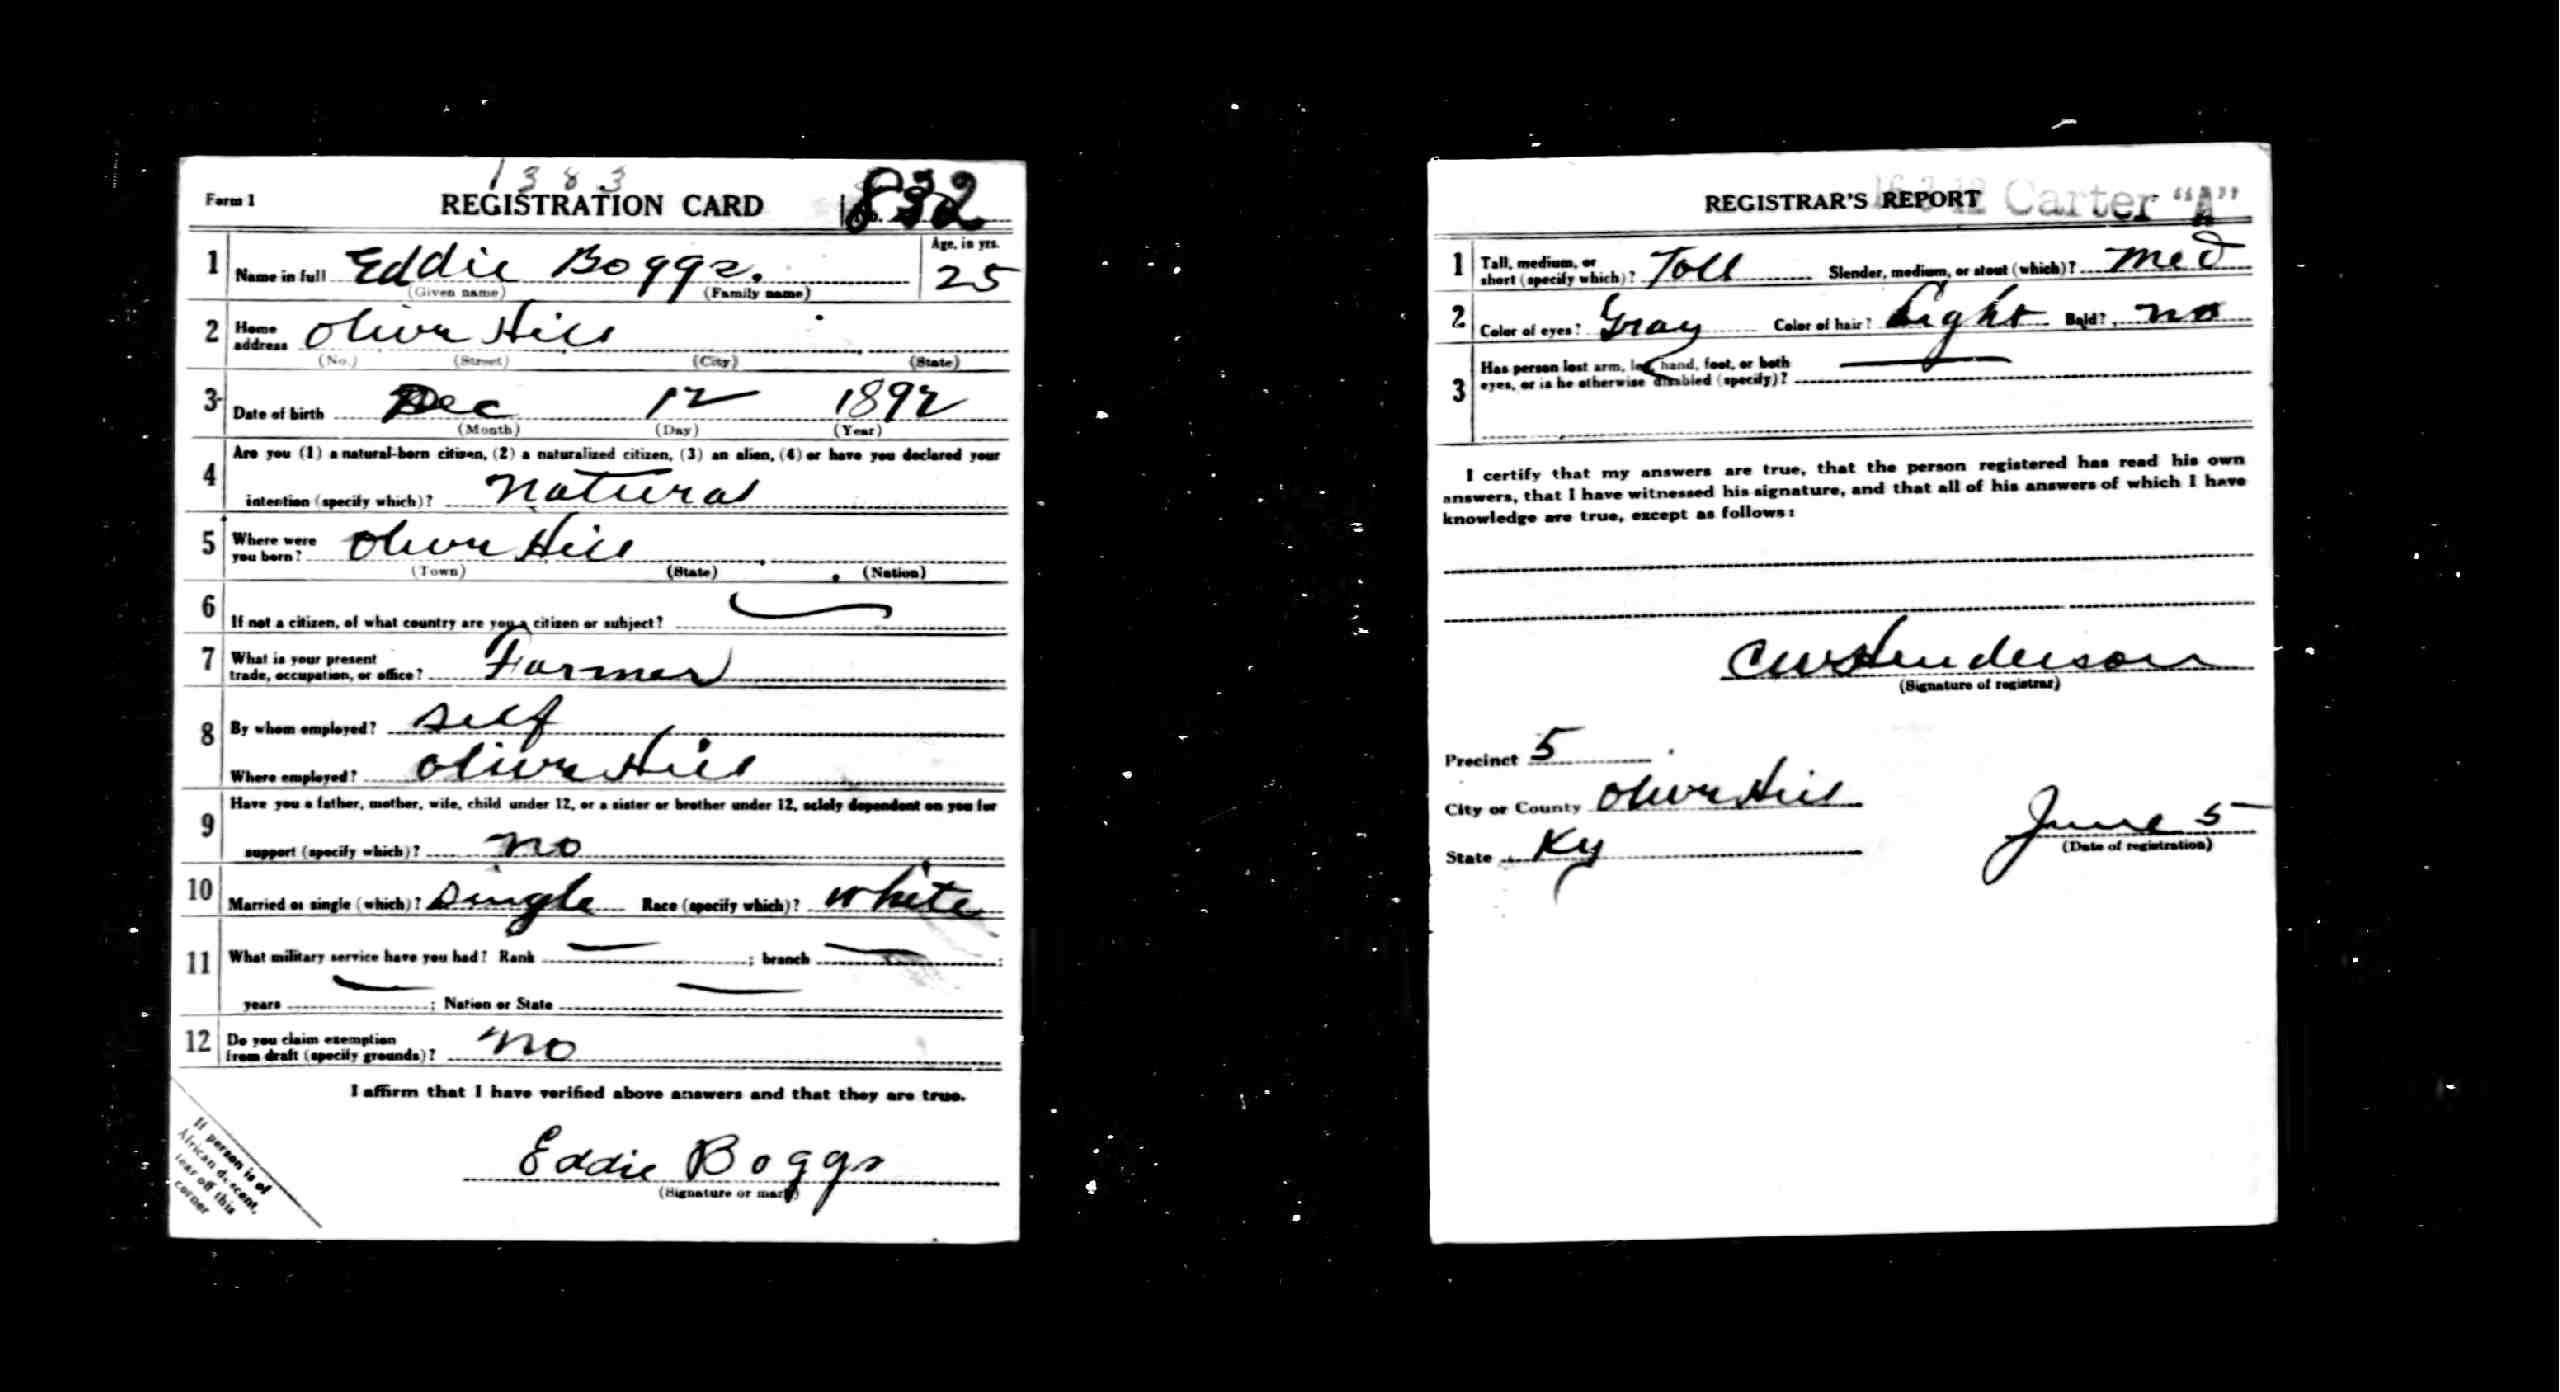 1383
Form 1 REGISTRATION CARD 832
1 Name in full Eddie Boggs. Age, in yrs. 25
(Given name) (Family name)
2 Home address Olive Hill
(No.) (Street) (City) (State)
3 Date of birth Dec 12 1892
(Month) (Day) (Year)
4 Are you (1) a natural-born citizen, (2) a naturalized citizen, (3) an alien, (4) or have you declared your
intention (specify which)? Natural
5 Where were you born? Olive Hill
(Town) (State) (Nation)
6 If not a citizen, of what country are you a citizen or subject?
7 What is your present trade, occupation, or office? Farmer
8 By whom employed? Self
Where employed? Olive Hill
9 Have you a father, mother, wife, child under 12, or a sister or brother under 12, solely dependent on you for
support (specify which)? no
10 Married or single (which)? Single Race (specify which)? White
11 What military service have you had? Rank ; branch ;
years ; Nation or State
12 Do you claim exemption from draft (specify grounds)? no
I affirm that I have verified above answers and that they are true.
Eddie Boggs
(Signature or mark)
If person is of
African descent,
tear off this
corner
REGISTRAR'S REPORT Carter "A"
1 Tall, medium, or short (specify which)? Tall Slender, medium, or stout (which)? Med
2 Color of eyes? Gray Color of hair? Light Bald? no
3 Has person lost arm, leg, hand, foot, or both
eyes, or is he otherwise disabled (specify)?
I certify that my answers are true, that the person registered has read his own
answers, that I have witnessed his signature, and that all of his answers of which I have
knowledge are true, except as follows:
CW Henderson
(Signature of registrar)
Precinct 5
City or County Olive Hill
State Ky
June 5
(Date of registration)